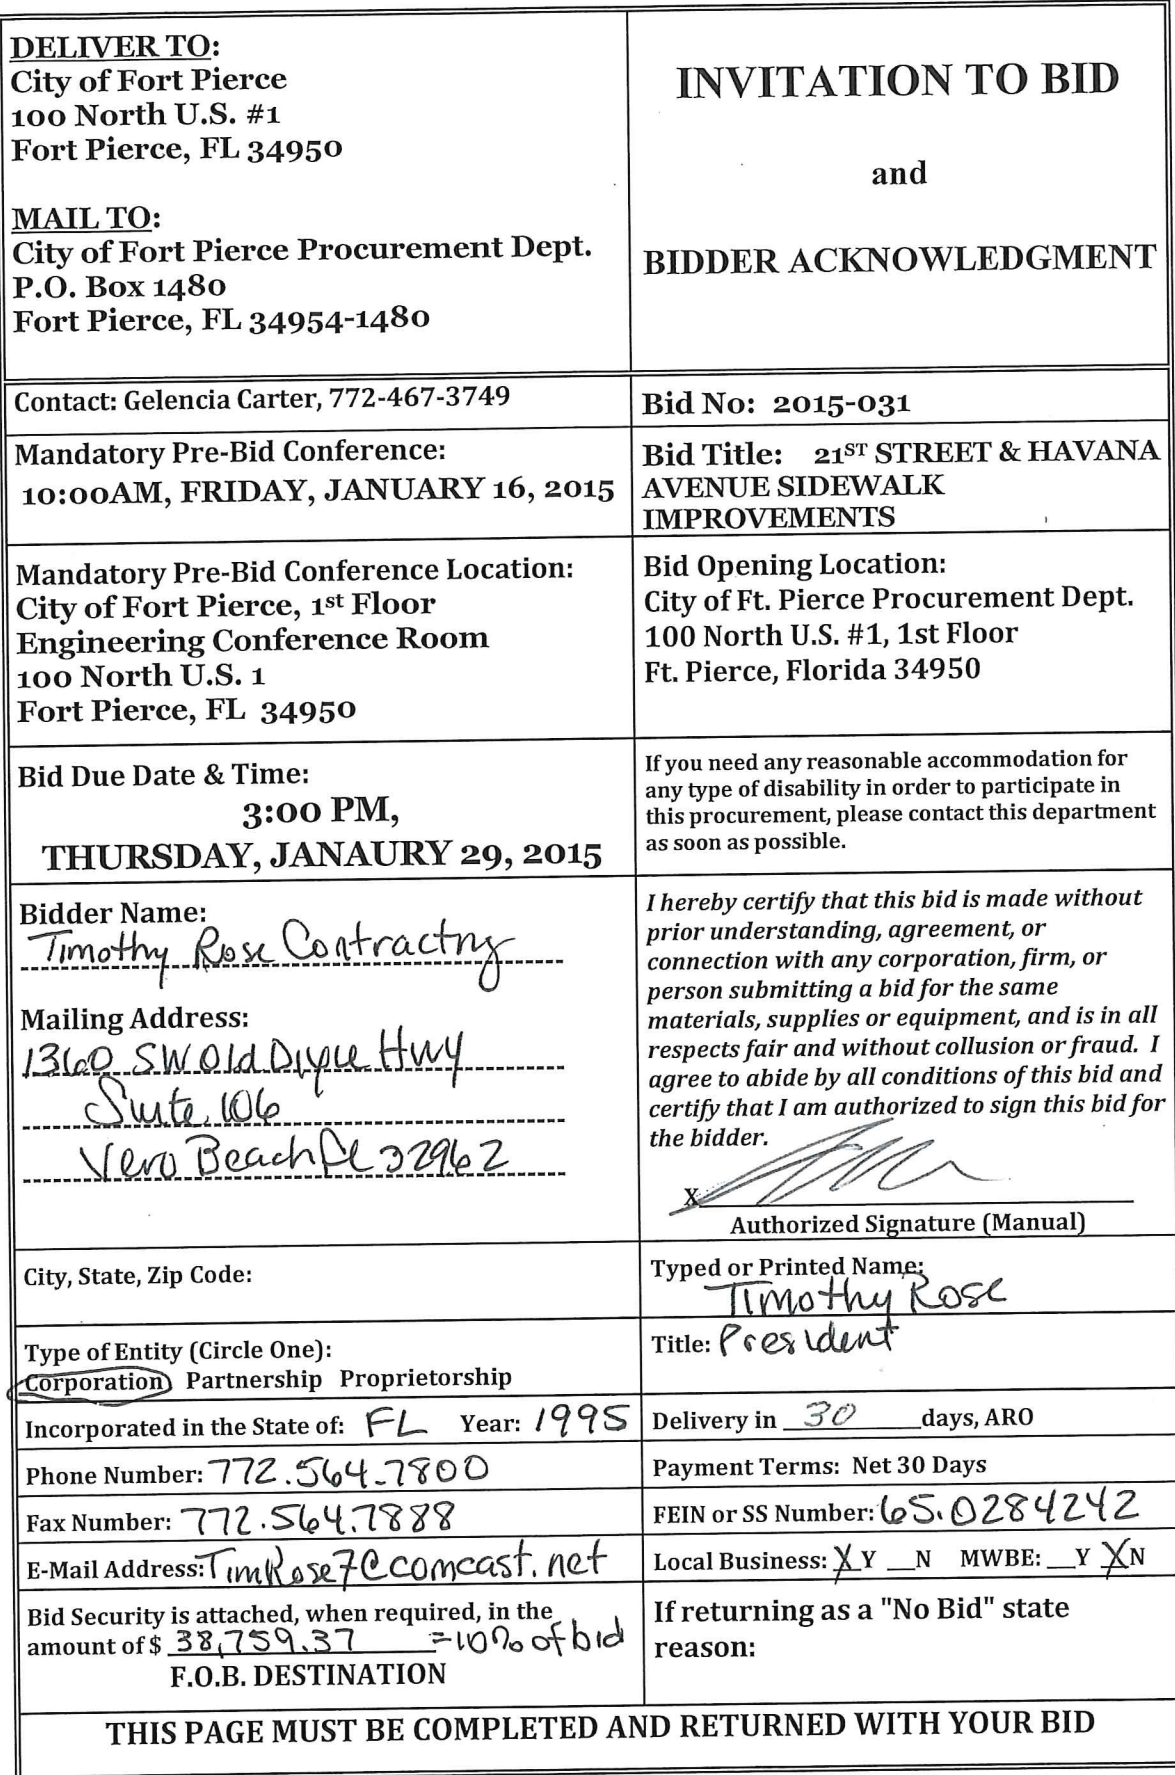 DELIVER TO:
City of Fort Pierce
100 North U.S. #1
Fort Pierce, FL 34950
MAIL TO:
City of Fort Pierce Procurement Dept.
P.O. Box 1480
Fort Pierce, FL 34954-1480
INVITATION TO BID
and
BIDDER ACKNOWLEDGMENT
Contact: Gelencia Carter, 772-467-3749
Bid No: 2015-031
Mandatory Pre-Bid Conference:
10:00AM, FRIDAY, JANUARY 16, 2015
Bid Title: 21ST STREET & HAVANA
AVENUE SIDEWALK
IMPROVEMENTS
Mandatory Pre-Bid Conference Location:
City of Fort Pierce, 1st Floor
Engineering Conference Room
100 North U.S. 1
Fort Pierce, FL 34950
Bid Opening Location:
City of Ft. Pierce Procurement Dept.
100 North U.S. #1, 1st Floor
Ft. Pierce, Florida 34950
Bid Due Date & Time:
3:00 PM,
THURSDAY, JANAURY 29, 2015
If you need any reasonable accommodation for
any type of disability in order to participate in
this procurement, please contact this department
as soon as possible.
Bidder Name:
Timothy Rose Contracting
Mailing Address:
1360 SW Old Dixie Hwy
Suite 106
Vero Beach FL 32962
I hereby certify that this bid is made without
prior understanding, agreement, or
connection with any corporation, firm, or
person submitting a bid for the same
materials, supplies or equipment, and is in all
respects fair and without collusion or fraud. I
agree to abide by all conditions of this bid and
certify that I am authorized to sign this bid for
the bidder.
X
Authorized Signature (Manual)
City, State, Zip Code:
Typed or Printed Name:
Timothy Rose
Type of Entity (Circle One):
Corporation Partnership Proprietorship
Title: President
Incorporated in the State of: FL Year: 1995
Delivery in 30 days, ARO
Phone Number: 772.564.7800
Payment Terms: Net 30 Days
Fax Number: 772.564.7888
FEIN or SS Number: 65.0284242
E-Mail Address: TimRose7@comcast.net
Local Business: X Y __N MWBE: __Y X N
Bid Security is attached, when required, in the
amount of $ 38,759.37 =10% of bid
F.O.B. DESTINATION
If returning as a "No Bid" state
reason:
THIS PAGE MUST BE COMPLETED AND RETURNED WITH YOUR BID